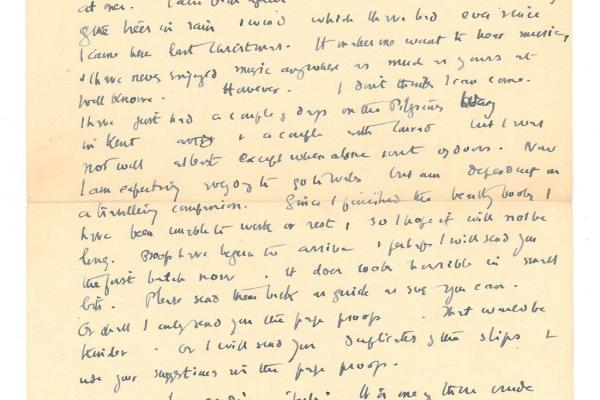 at once. I am
of the trees in rain & wind which I have had ever since
I came here last Christmas. It makes me want to hear music,
& I have never enjoyed music anywhere as much as yours at
Well Knowe. However. I don't think I can come.
I have just had a couple of days on the Pilgrims Way
in Kent & a couple with but I was
not well at best except when alone & out of doors. Now
I am expecting every day to go to Wales but am dependent on
a travelling companion. Since I finished the beastly book I
have been unable to work or rest, so I hope it will not be
long. Proofs have begun to arrive & perhaps I will send you
the first batch now. It does look horrible in small
bits. Please send them back as quick as ever you can.
Or shall I only send you the page proofs. That would be
kinder. Or I will send you duplicates of the slips &
use your suggestions in the page proofs.
It is one of those crude